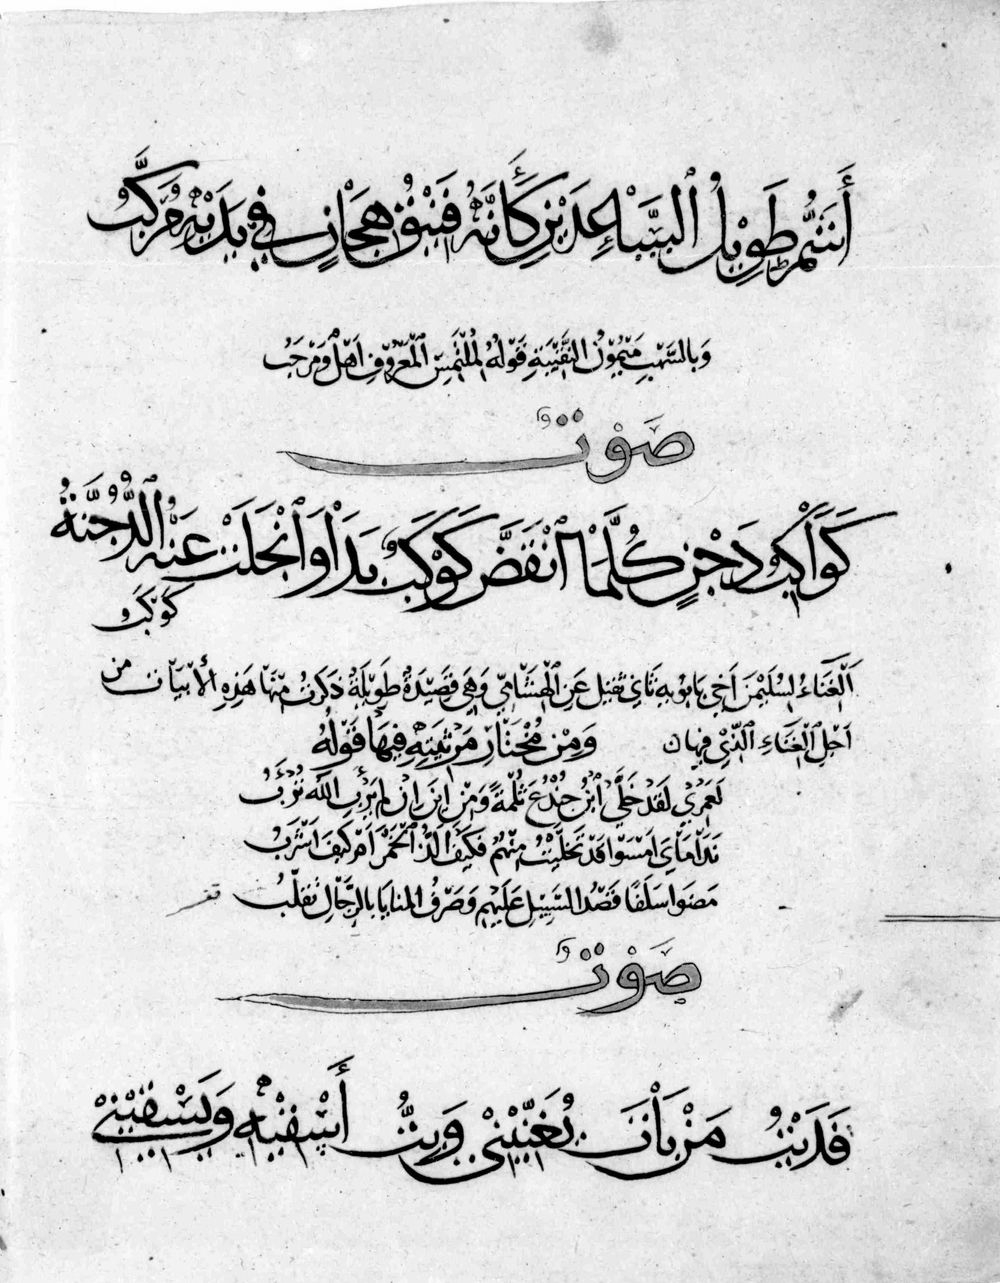 أَشَمُّ طَوِيلُ السَّاعِدَيْنِ كَأَنَّهُ فَنِيقُ هِجَانٍ فِي يَدَيْهِ مُرَكَّبُ
وَبِالسَّهْبِ مَيْمُونُ النَّقِيبَةِ قَوْلُهُ لِمُلْتَمِسِ الْمَعْرُوفِ أَهْلٌ وَمَرْحَبُ
صَوْتٌ
كَوَاكِبُ دَجْنٍ كُلَّمَا انْقَضَّ كَوْكَبٌ بَدَا وَانْجَلَتْ عَنْهُ الدُّجُنَّةُ
كَوْكَبُ
الْغِنَاءُ لِسُلَيْمٰنَ أَخِي بَابُويهِ ثَانِي ثَقِيلٍ عَنِ الْهِشَامِيِّ وَهِيَ قَصِيدَةٌ طَوِيلَةٌ ذَكَرْتُ مِنْهَا هَذِهِ الْأَبْيَاتَ مِنْ
أَجْلِ الْغِنَاءِ الَّذِي فِيهَا وَمِنْ مُخْتَارِ مَرْثِيَتِهِ فِيهَا قَوْلُهُ
لَعَمْرِي لَقَدْ خَلَّى ابْنُ جُنْدُعَ ثُلْمَةً وَمِنْ أَيْنَ إِنْ لَمْ يَرْأَبِ اللهُ تُرْأَبُ
نَدَامَايَ أَمْسَوْا قَدْ تَخَلَّيْتُ مِنْهُمُ فَكَيْفَ أَلَذُّ الْخَمْرَ أَمْ كَيْفَ أَشْرَبُ
مَضَوْا سَلَفًا قَصْدُ السَّبِيلِ عَلَيْهِمُ وَصَرْفُ الْمَنَايَا بِالرِّجَالِ تَقَلَّبُ
صَوْتٌ
فَدَيْتُ مَنْ بَاتَ يُغَنِّينِي وَبِتُّ أَسْقِيهِ وَيَسْقِينِي